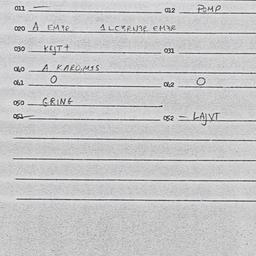 011 — 012 POMP
020 A EM3R 1LCERN3R EM3R
030 KEJT+ 031
060 A KARDIMIS
061 O 062 O
050 GRING
051 052 - LAJVT